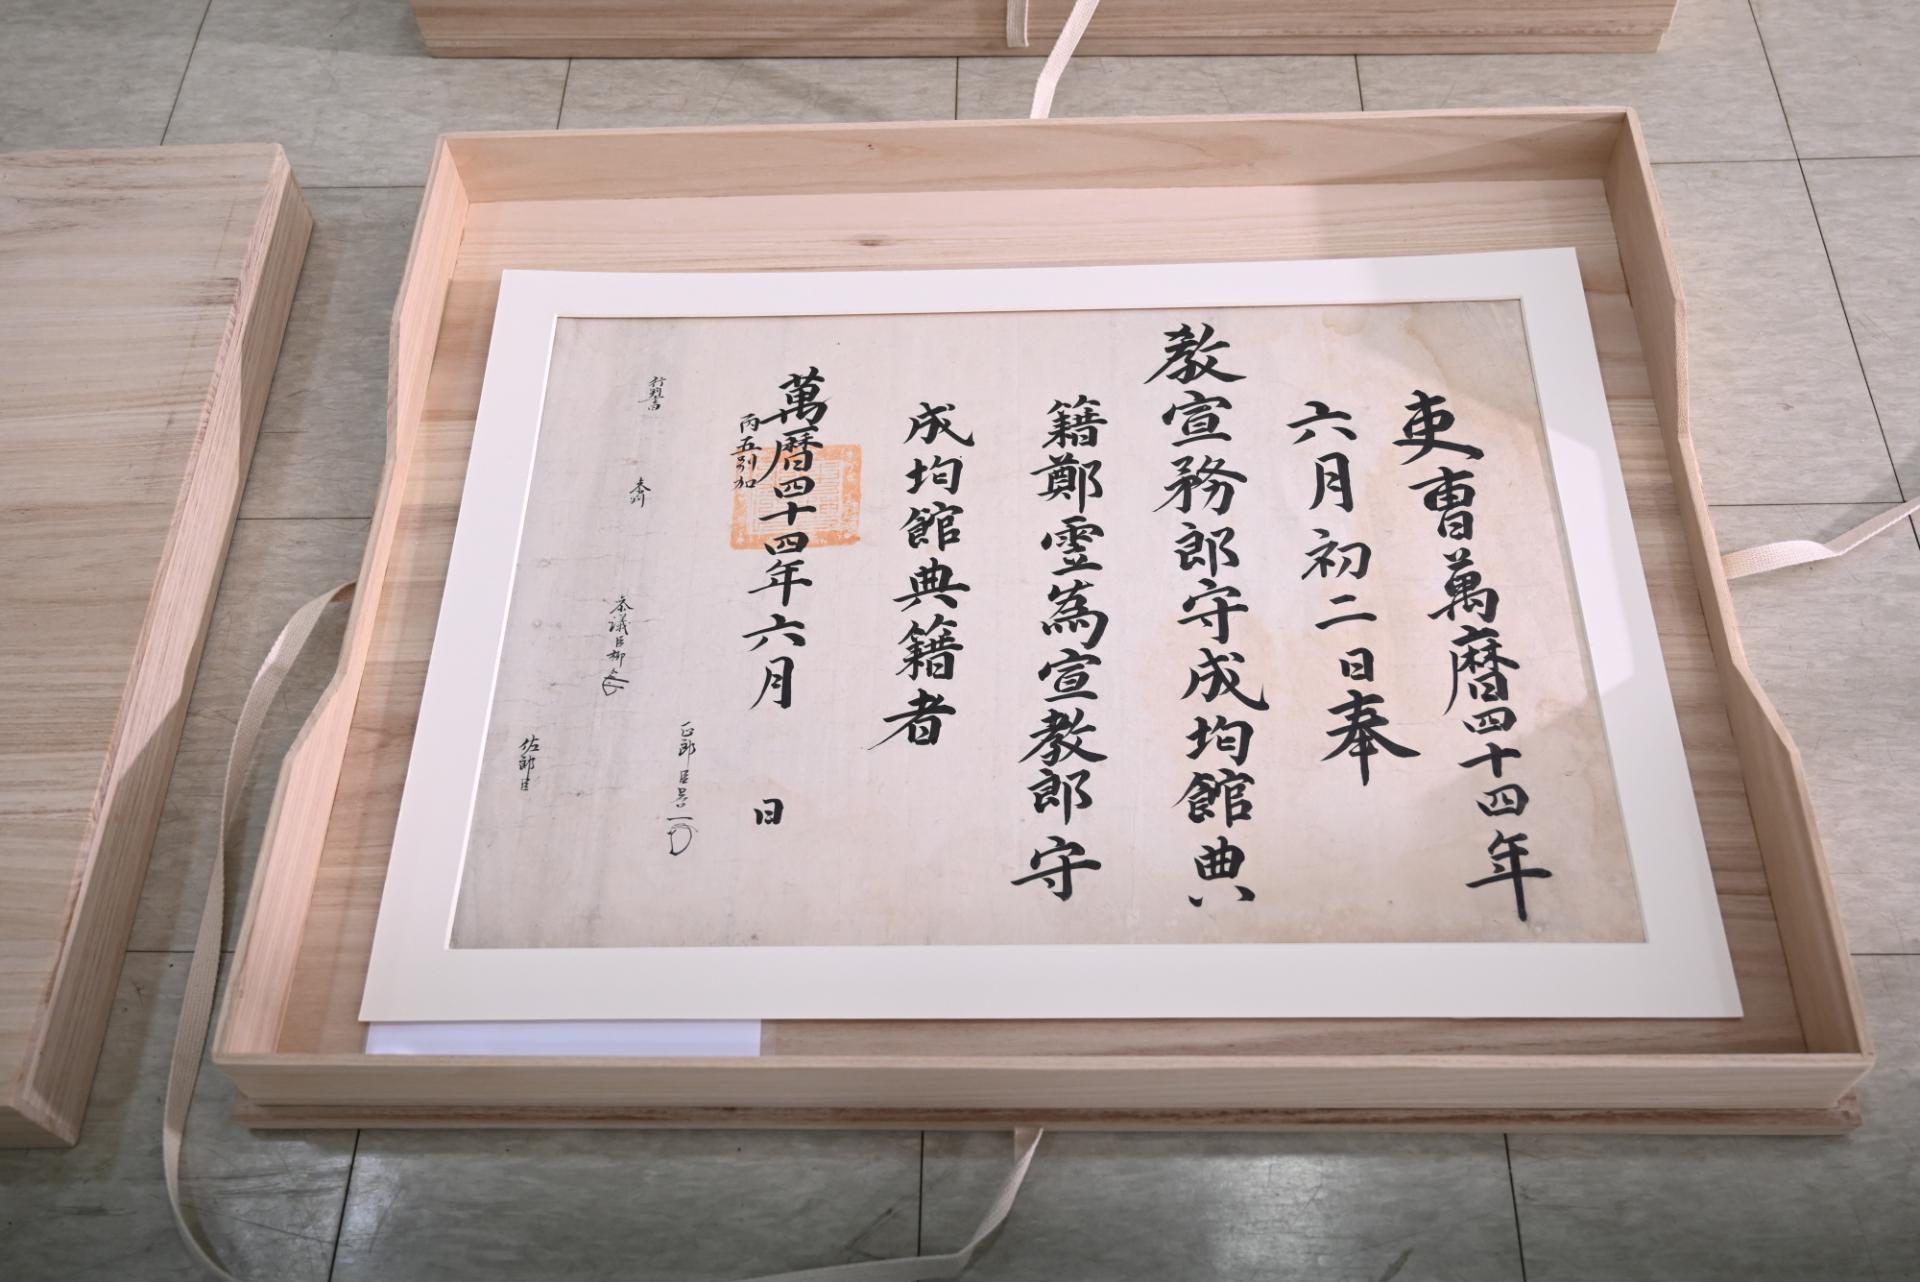 吏曹萬曆四十四年
六月初二日奉
敎宣務郎守成均館典
籍鄭霊為宣敎郎守
成均館典籍者
萬曆四十四年六月 日
丙五別加
正郎臣
叅議臣柳
佐郎臣